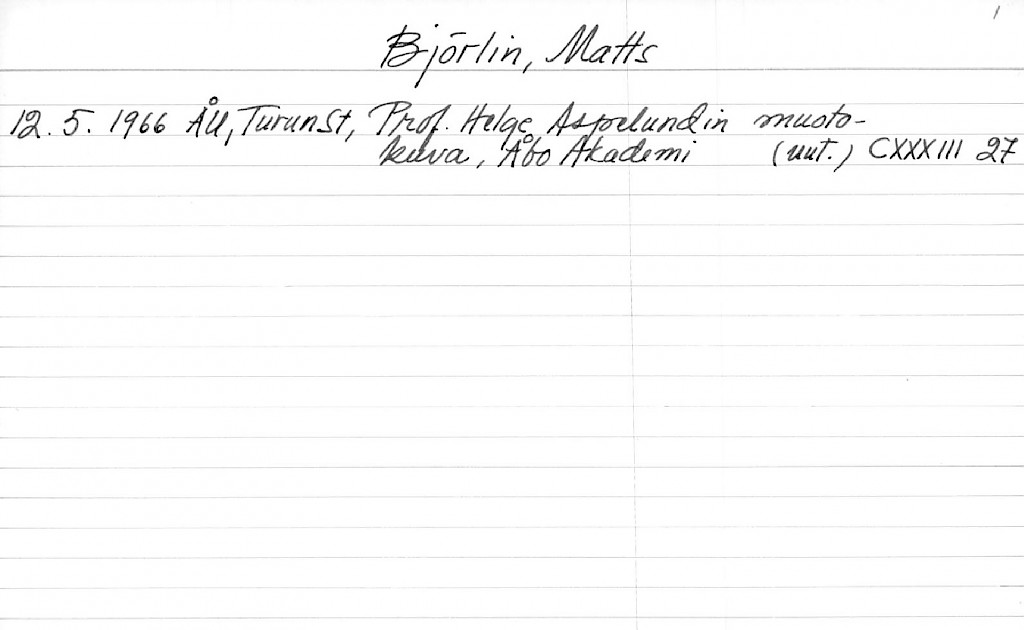 1
Björlin, Matts
12.5.1966 ÅU, TurunSt, Prof. Helge Aspelundin muoto-
kuva, Åbo Akademi (uut.) CXXXIII 27